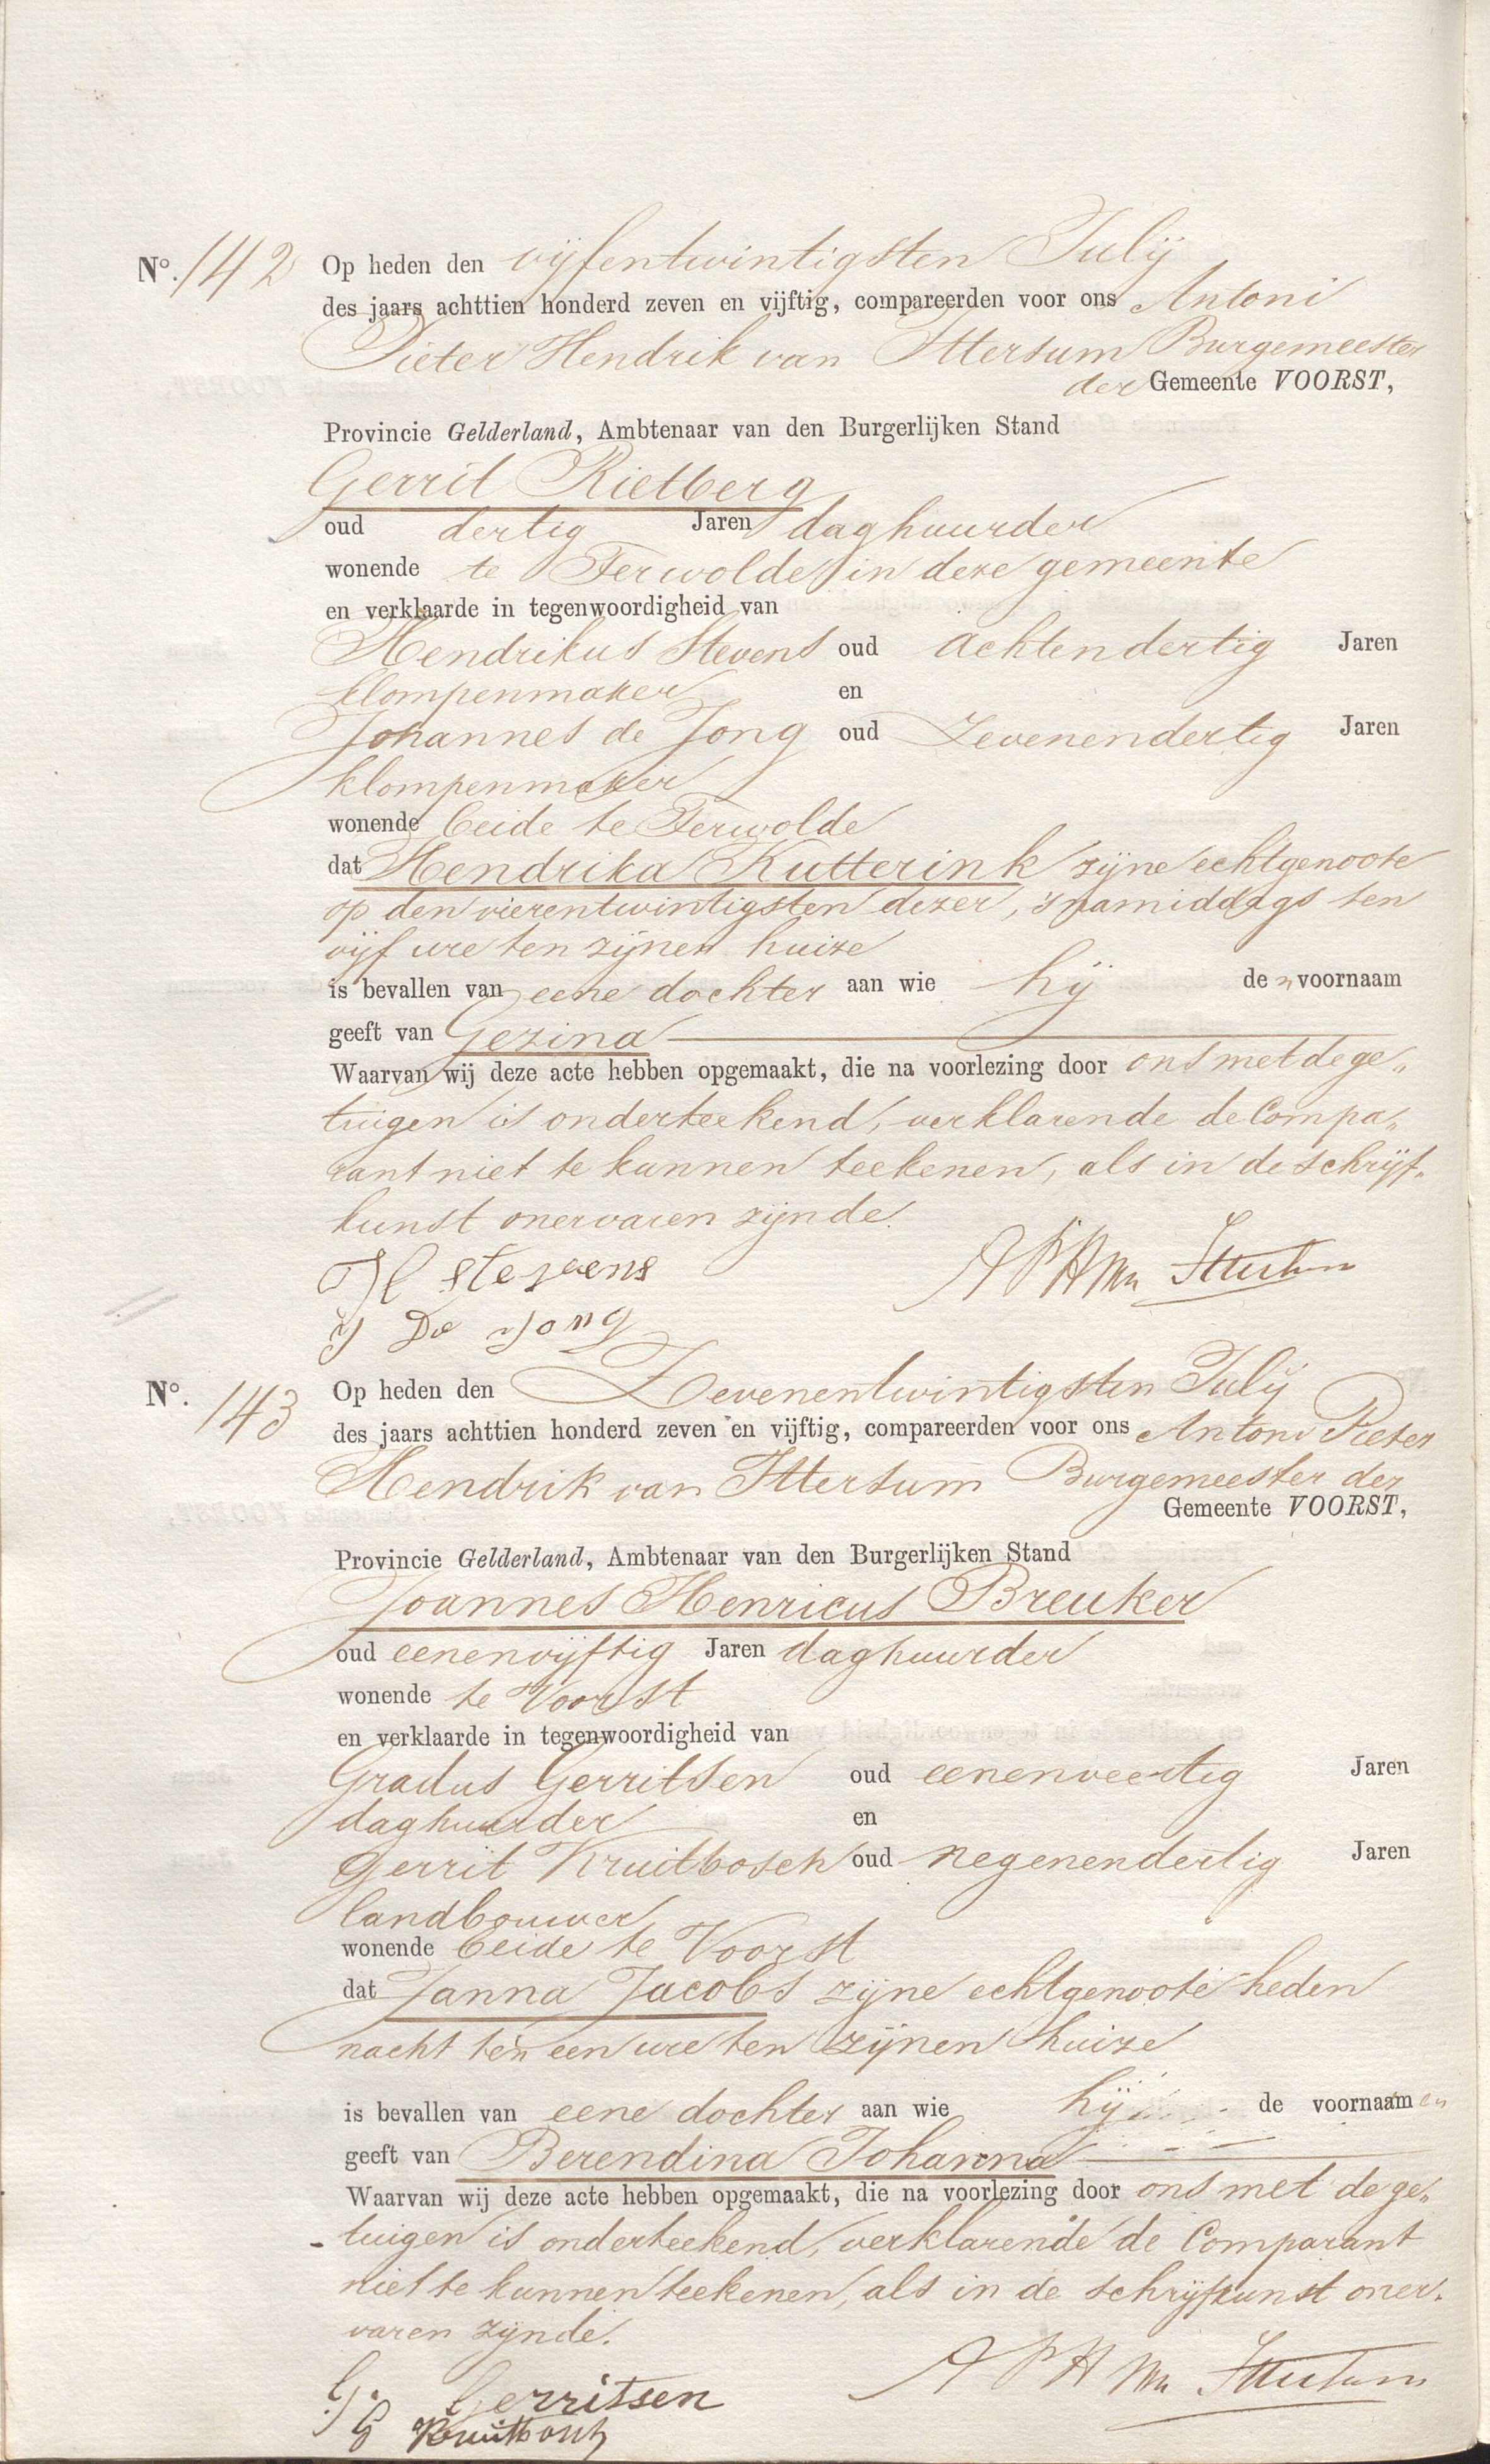 N°. 142 Op heden den vijfentwintigsten Julij
des jaars achttien honderd zeven en vijftig, compareerden voor ons Antoni
Pieter Hendrik van Ittersum Burgemeester
der Gemeente VOORST,
Provincie Gelderland, Ambtenaar van den Burgerlijken Stand
Gerrit Rietberg
oud dertig Jaren daghuurder
wonende te Terwolde in deze gemeente
en verklaarde in tegenwoordigheid van
Hendrikus Stevens oud achtendertig Jaren
klompenmaker en
Johannes de Jong oud Zevenendertig Jaren
klompenmaker
wonende beide te Terwolde
dat Hendrika Kutterink zijne echtgenoote
op den vierentwintigsten dezer, 's namiddags ten
vijf ure ten zijnen huize
is bevallen van eene dochter aan wie hij de n voornaam
geeft van Gezina
Waarvan wij deze acte hebben opgemaakt, die na voorlezing door ons met de ge„
tuigen is onderteekend, verklarende de Compa„
rant niet te kunnen teekenen, als in de schrijf„
kunst onervaren zijnde.
H stevens APHvan Ittersum
J De Jong
N°. 143 Op heden den Zevenentwintigsten Julij
des jaars achttien honderd zeven en vijftig, compareerden voor ons Antoni Pieter
Hendrik van Ittersum Burgemeester der
Gemeente VOORST,
Provincie Gelderland, Ambtenaar van den Burgerlijken Stand
Joannes Henricus Breuker
oud eenenvijftig Jaren daghuurder
wonende te Voorst
en verklaarde in tegenwoordigheid van
Gradus Gerritsen oud eenenveertig Jaren
daghuurder en
Gerrit Kruitbosch oud negenendertig Jaren
landbouwer
wonende beide te Voorst
dat Janna Jacobs zijne echtgenoote heden
nacht ten een ure ten zijnen huize
is bevallen van eene dochter aan wie hij de voornaamen
geeft van Berendina Johanna
Waarvan wij deze acte hebben opgemaakt, die na voorlezing door ons met de ge„
tuigen is onderteekend, verklarende de Comparant
niet te kunnen teekenen, als in de schrijfkunst oner„
varen zijnde.
G. Gerritsen APHvan Ittersum
G Kruitbosch